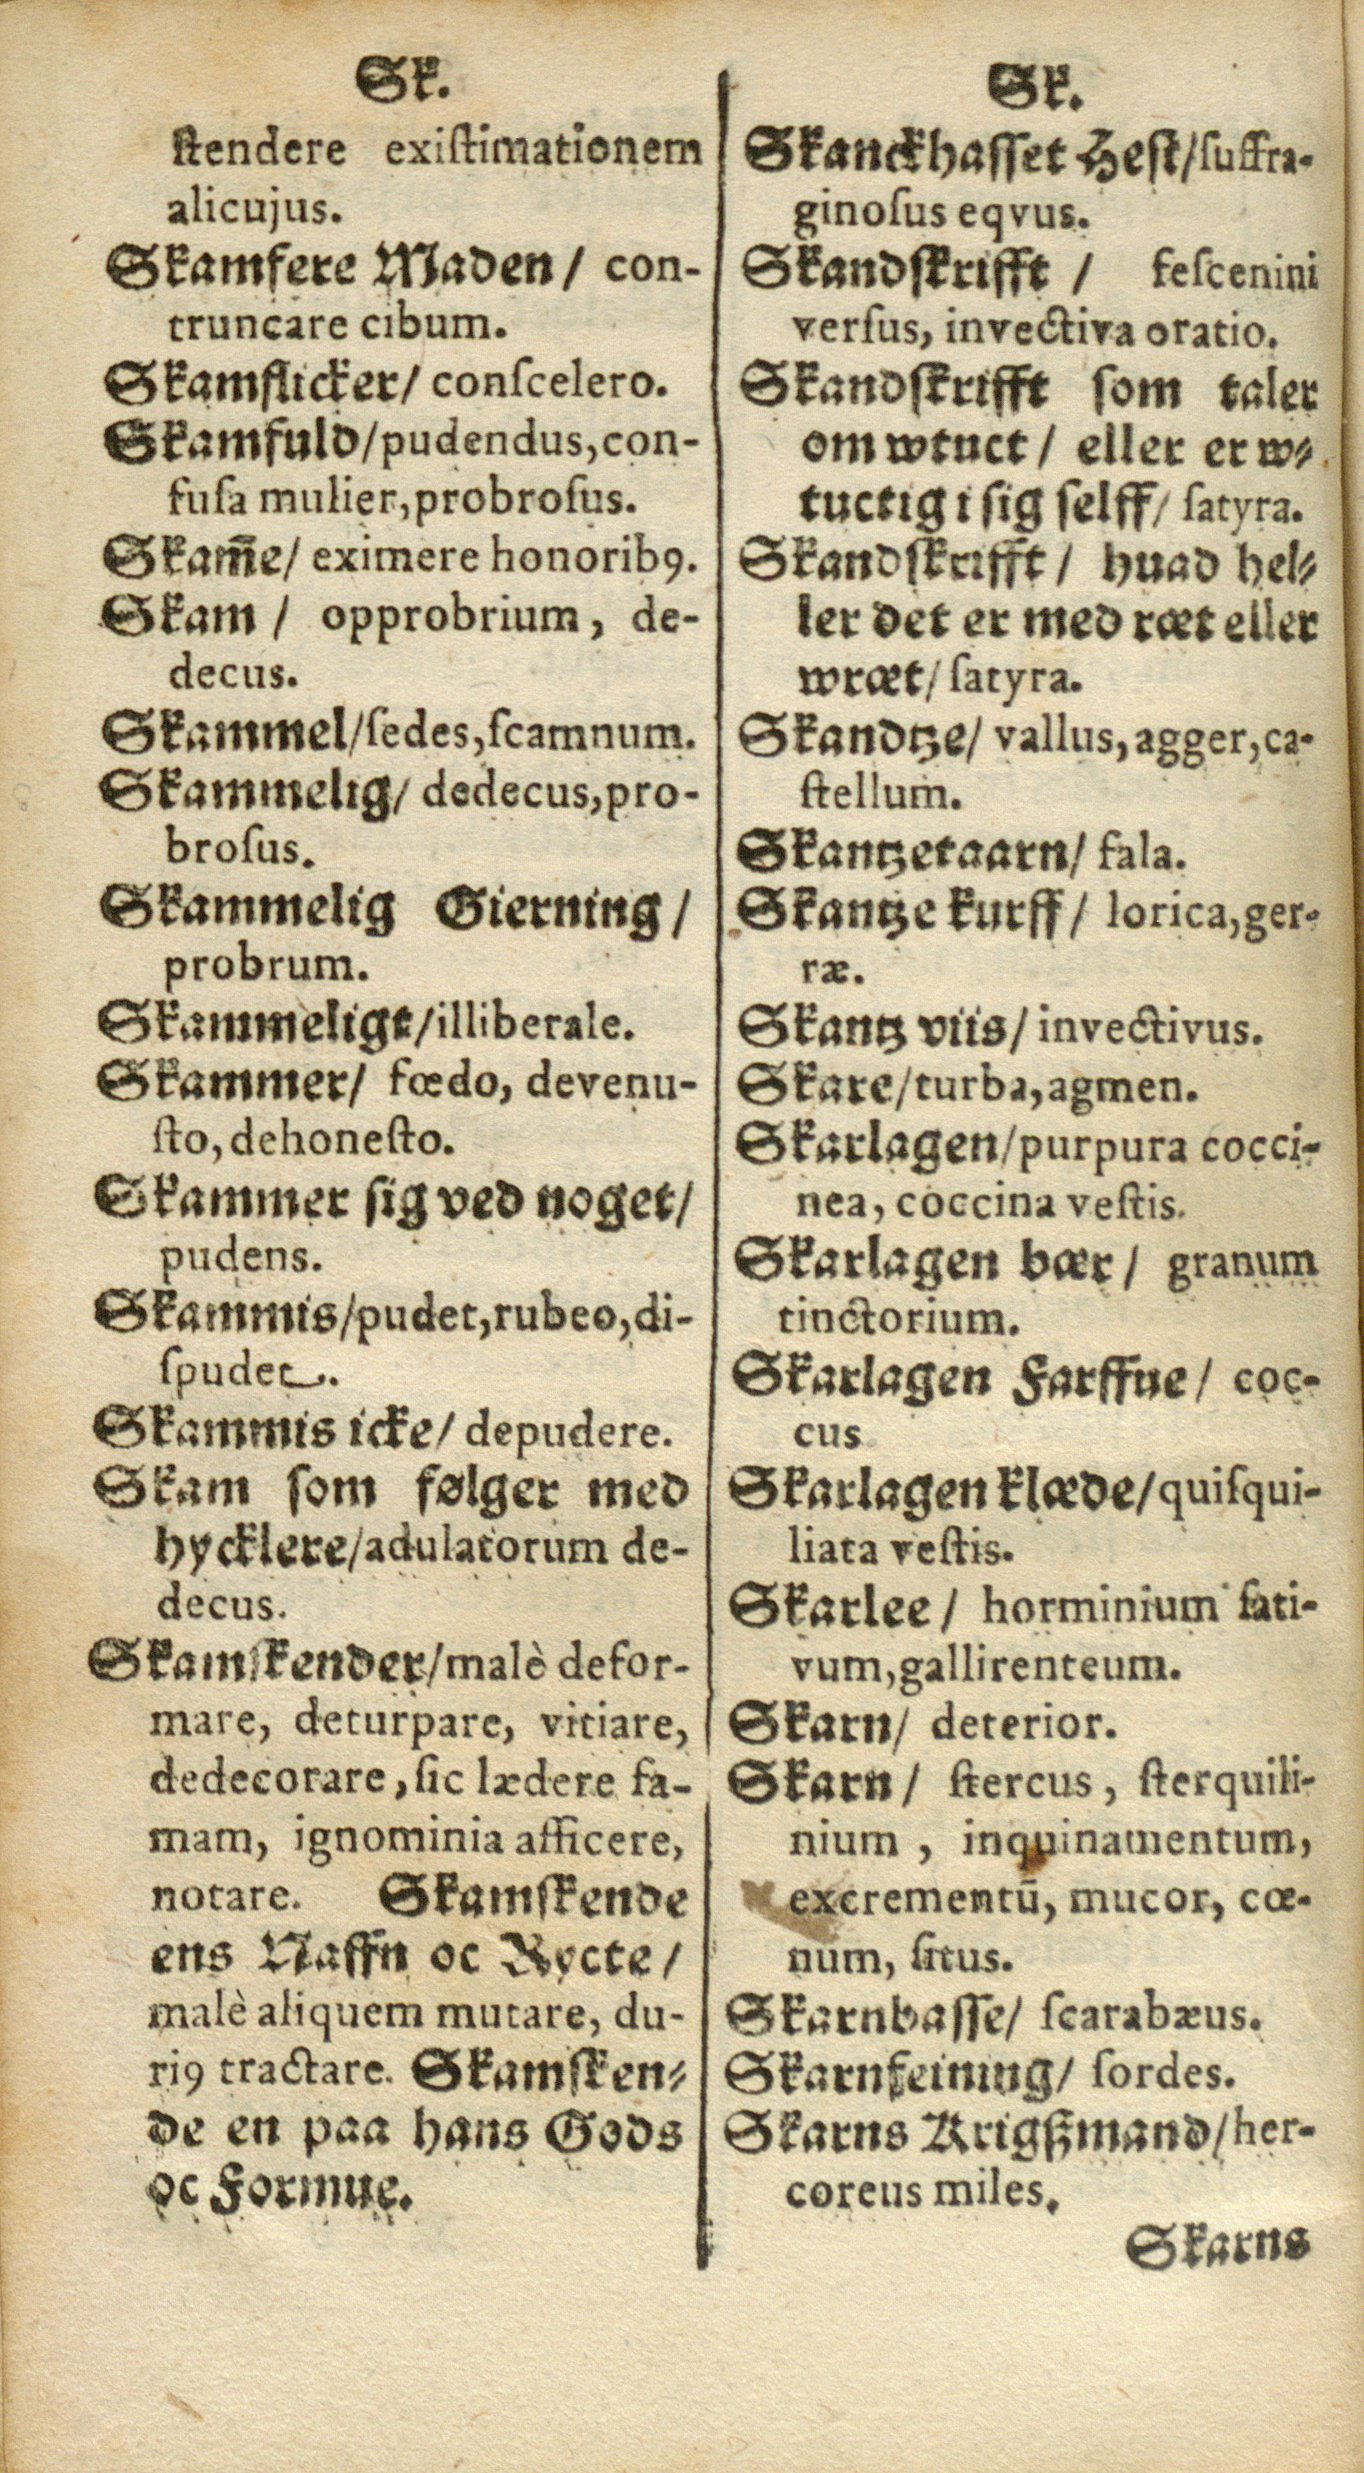 Sk.
ſtendere exiſtimationem
alicujus.
Skamfere Maden / con-
truncare cibum.
Skamflicker/ conſcelero.
Skamfuld/pudendus,con-
fuſa mulier,probroſus.
Skam̅e/ eximere honorib9.
Skam / opprobrium, de-
decus.
Skammel/ſedes,ſcamnum.
Skammelig/ dedecus,pro-
broſus.
Skammelig Gierning /
probrum.
Skammeligt/illiberale.
Skammer/ fœdo, devenu-
ſto, dehoneſto.
Skammer ſig ved noget/
pudens.
Skammis/pudet,rubeo,di-
ſpudet.
Skammis icke/ depudere.
Skam ſom følger med
hycklere/adulatorum de-
decus.
Skamſkender/malè defor-
mare, deturpare, vitiare,
dedecorare, ſic lædere fa-
mam, ignominia afficere,
notare. Skamſkende
ens Naffn oc Rycte /
malè aliquem mutare, du-
ri9 tractare. Skamſken-
de en paa hans Gods
oc Formue.
Sk.
Skanckhaſſet Heſt/ſuffra-
ginoſus eqvus.
Skandſkrifft / feſcenini
verſus, invectiva oratio.
Skandſkrifft ſom taler
om wtuct / eller er w-
tuctig i ſig ſelff/ ſatyra.
Skandſkrifft / huad hel-
ler det er med ræt eller
wræt/ ſatyra.
Skandtze/ vallus, agger,ca-
ſtellum.
Skantzetaarn/ fala.
Skantze kurff / lorica,ger-
ræ.
Skantz viis/ invectivus.
Skare/turba,agmen.
Skarlagen/purpura cocci-
nea, coccina veſtis.
Skarlagen bær / granum
tinctorium.
Skarlagen Farffue / coc-
cus
Skarlagen klæde/quiſqui-
liata veſtis.
Skarlee / horminium ſati-
vum,gallirenteum.
Skarn/ deterior.
Skarn / ſtercus, ſterquili-
nium, inquinamentum,
excrementū, mucor, cœ-
num, ſitus.
Skarnbaſſe/ ſcarabæus.
Skarnfeining/ ſordes.
Skarns Krigßmand/her-
coreus miles.
Skarns